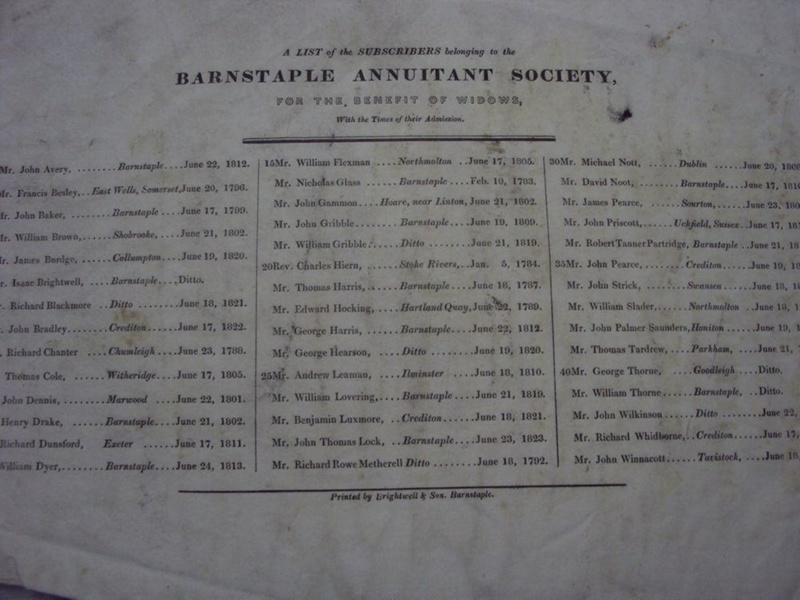 A LIST of the SUBSCRIBERS belonging to the
BARNSTAPLE ANNUITANT SOCIETY,
FOR THE BENEFIT OF WIDOWS,
With the Times of their Admission.
Mr. John Avery, ........Barnstaple....June 22, 1812.
Mr. Francis Besley,..East Wells, Somerset,June 20, 1796.
Mr. John Baker, ......Barnstaple ....June 17, 1799.
Mr. William Brown,.....Shobrooke, ....June 21, 1802.
Mr. James Buridge, ....Collumpton ....June 19, 1820.
r. Isaac Brightwell, ....Barnstaple....Ditto.
r. Richard Blackmore ..Ditto ........June 18, 1821.
. John Bradley......Crediton......June 17, 1822.
. Richard Chanter ....Chumleigh ....June 23, 1788.
Thomas Cole, ......Witheridge....June 17, 1805.
John Dennis,......Marwood ....June 22, 1801.
Henry Drake, ......Barnstaple....June 21, 1802.
Richard Dunsford, Exeter ......June 17, 1811.
William Dyer,.......Barnstaple....June 24, 1813.
15Mr. William Flexman ....Northmolton ..June 17, 1805.
Mr. Nicholas Glass ......Barnstaple ....Feb. 10, 1783.
Mr. John Gammon....Hoare, near Linton, June 21, 1802.
Mr. John Gribble......Barnstaple....June 19, 1809.
Mr. William Gribble.....Ditto ......June 21, 1819.
20Rev. Charles Hiern, ......Stoke Rivers,..Jan. 5, 1784.
Mr. Thomas Harris, ......Barnstaple....June 18, 1787.
Mr. Edward Hocking,....Hartland Quay,June 22, 1789.
Mr. George Harris, ......Barnstaple....June 22, 1812.
Mr. George Hearson, ....Ditto ........June 19, 1820.
25Mr. Andrew Leaman, ....Ilminster ....June 18, 1810.
Mr. William Lovering,....Barnstaple ....June 21, 1819.
Mr. Benjamin Luxmore, ..Crediton......June 18, 1821.
Mr. John Thomas Lock, ..Barnstaple....June 23, 1823.
Mr. Richard Rowe Metherell Ditto ........June 18, 1792.
30Mr. Michael Nott, ......Dublin ......June 20,
Mr. David Noot,........Barnstaple....June 17,
Mr. James Pearce, ......Sourton,......June 23,
Mr. John Priscott,......Uckfield, Sussex..June 17,
Mr. Robert Tanner Partridge, Barnstaple ..June 21,
35Mr. John Pearce,........Crediton......June 19,
Mr. John Strick, ........Swansea ......June 18,
Mr. William Slader,......Northmolton ..June 18,
Mr. John Palmer Saunders,Honiton ......June 19,
Mr. Thomas Tardrew,....Parkham, ....June 21,
40Mr. George Thorne, ......Goodleigh ....Ditto.
Mr. William Thorne......Barnstaple, ..Ditto.
Mr. John Wilkinson ......Ditto ........June 22,
Mr. Richard Whidborne,..Crediton......June 17,
Mr. John Winnacott......Tavistock, ....June 18,
Printed by Brightwell & Son. Barnstaple.